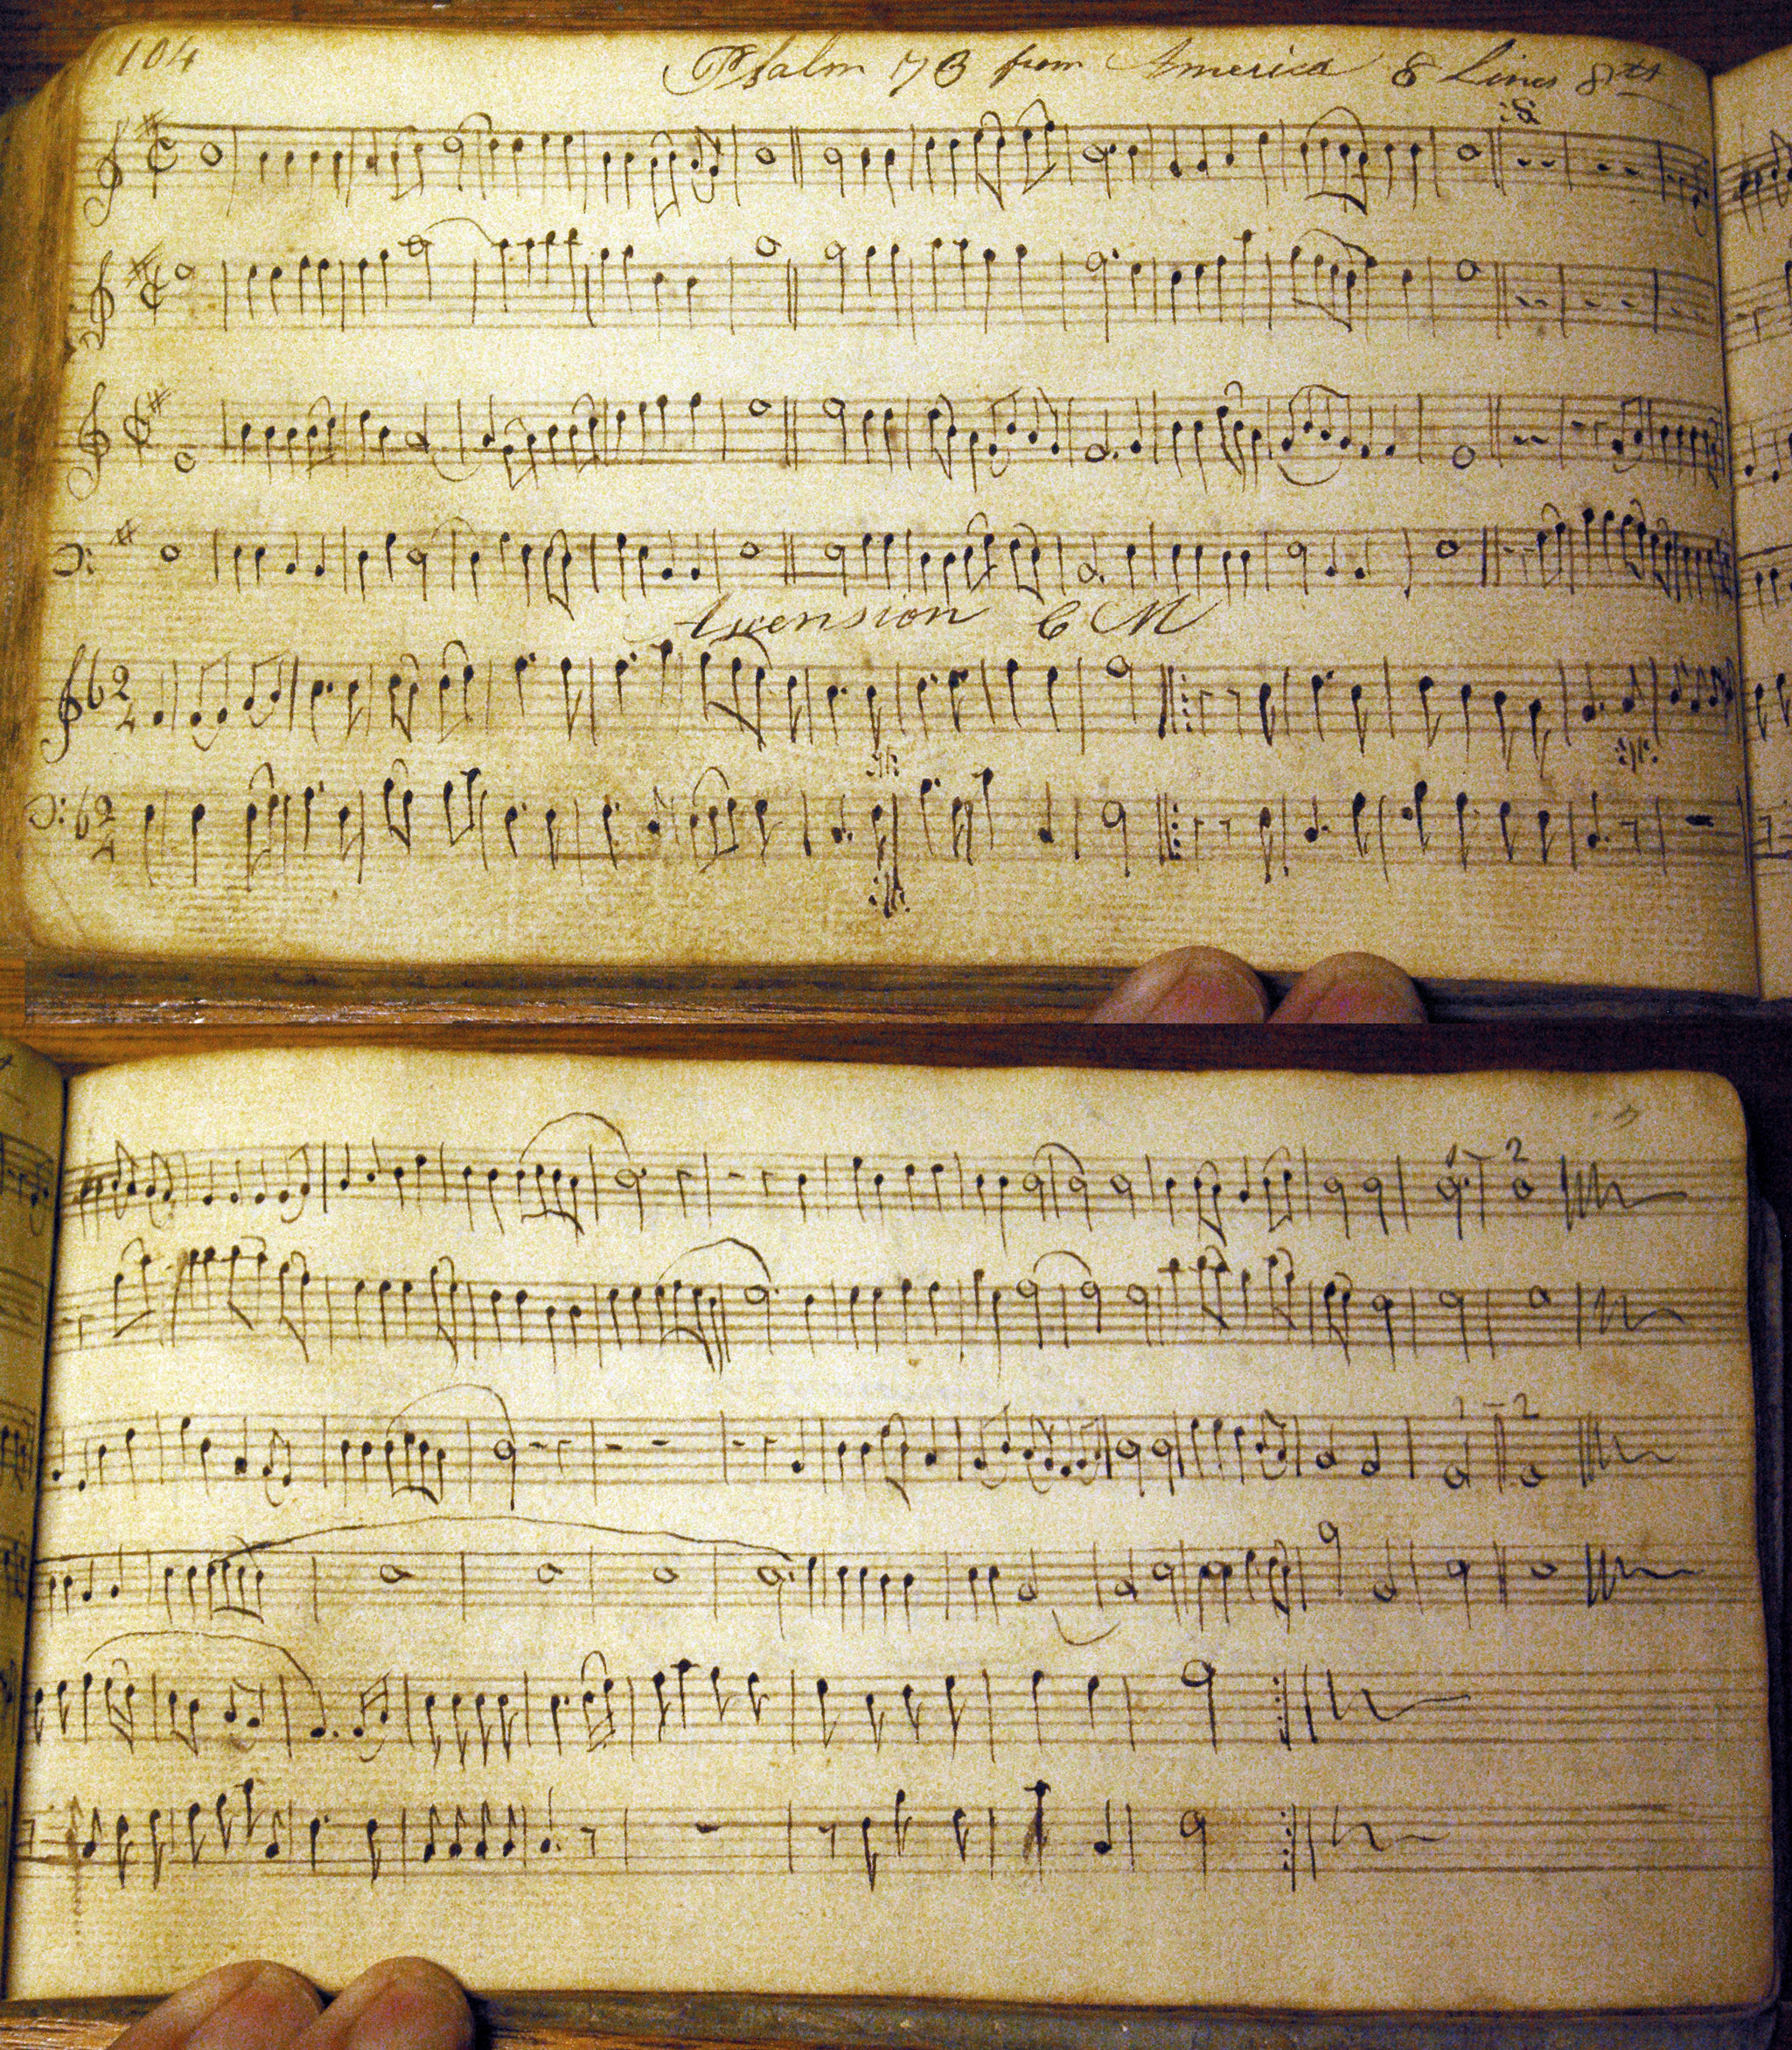 104
Psalm 73 from America 8 Lines 8ts
Ascension C M
2
2